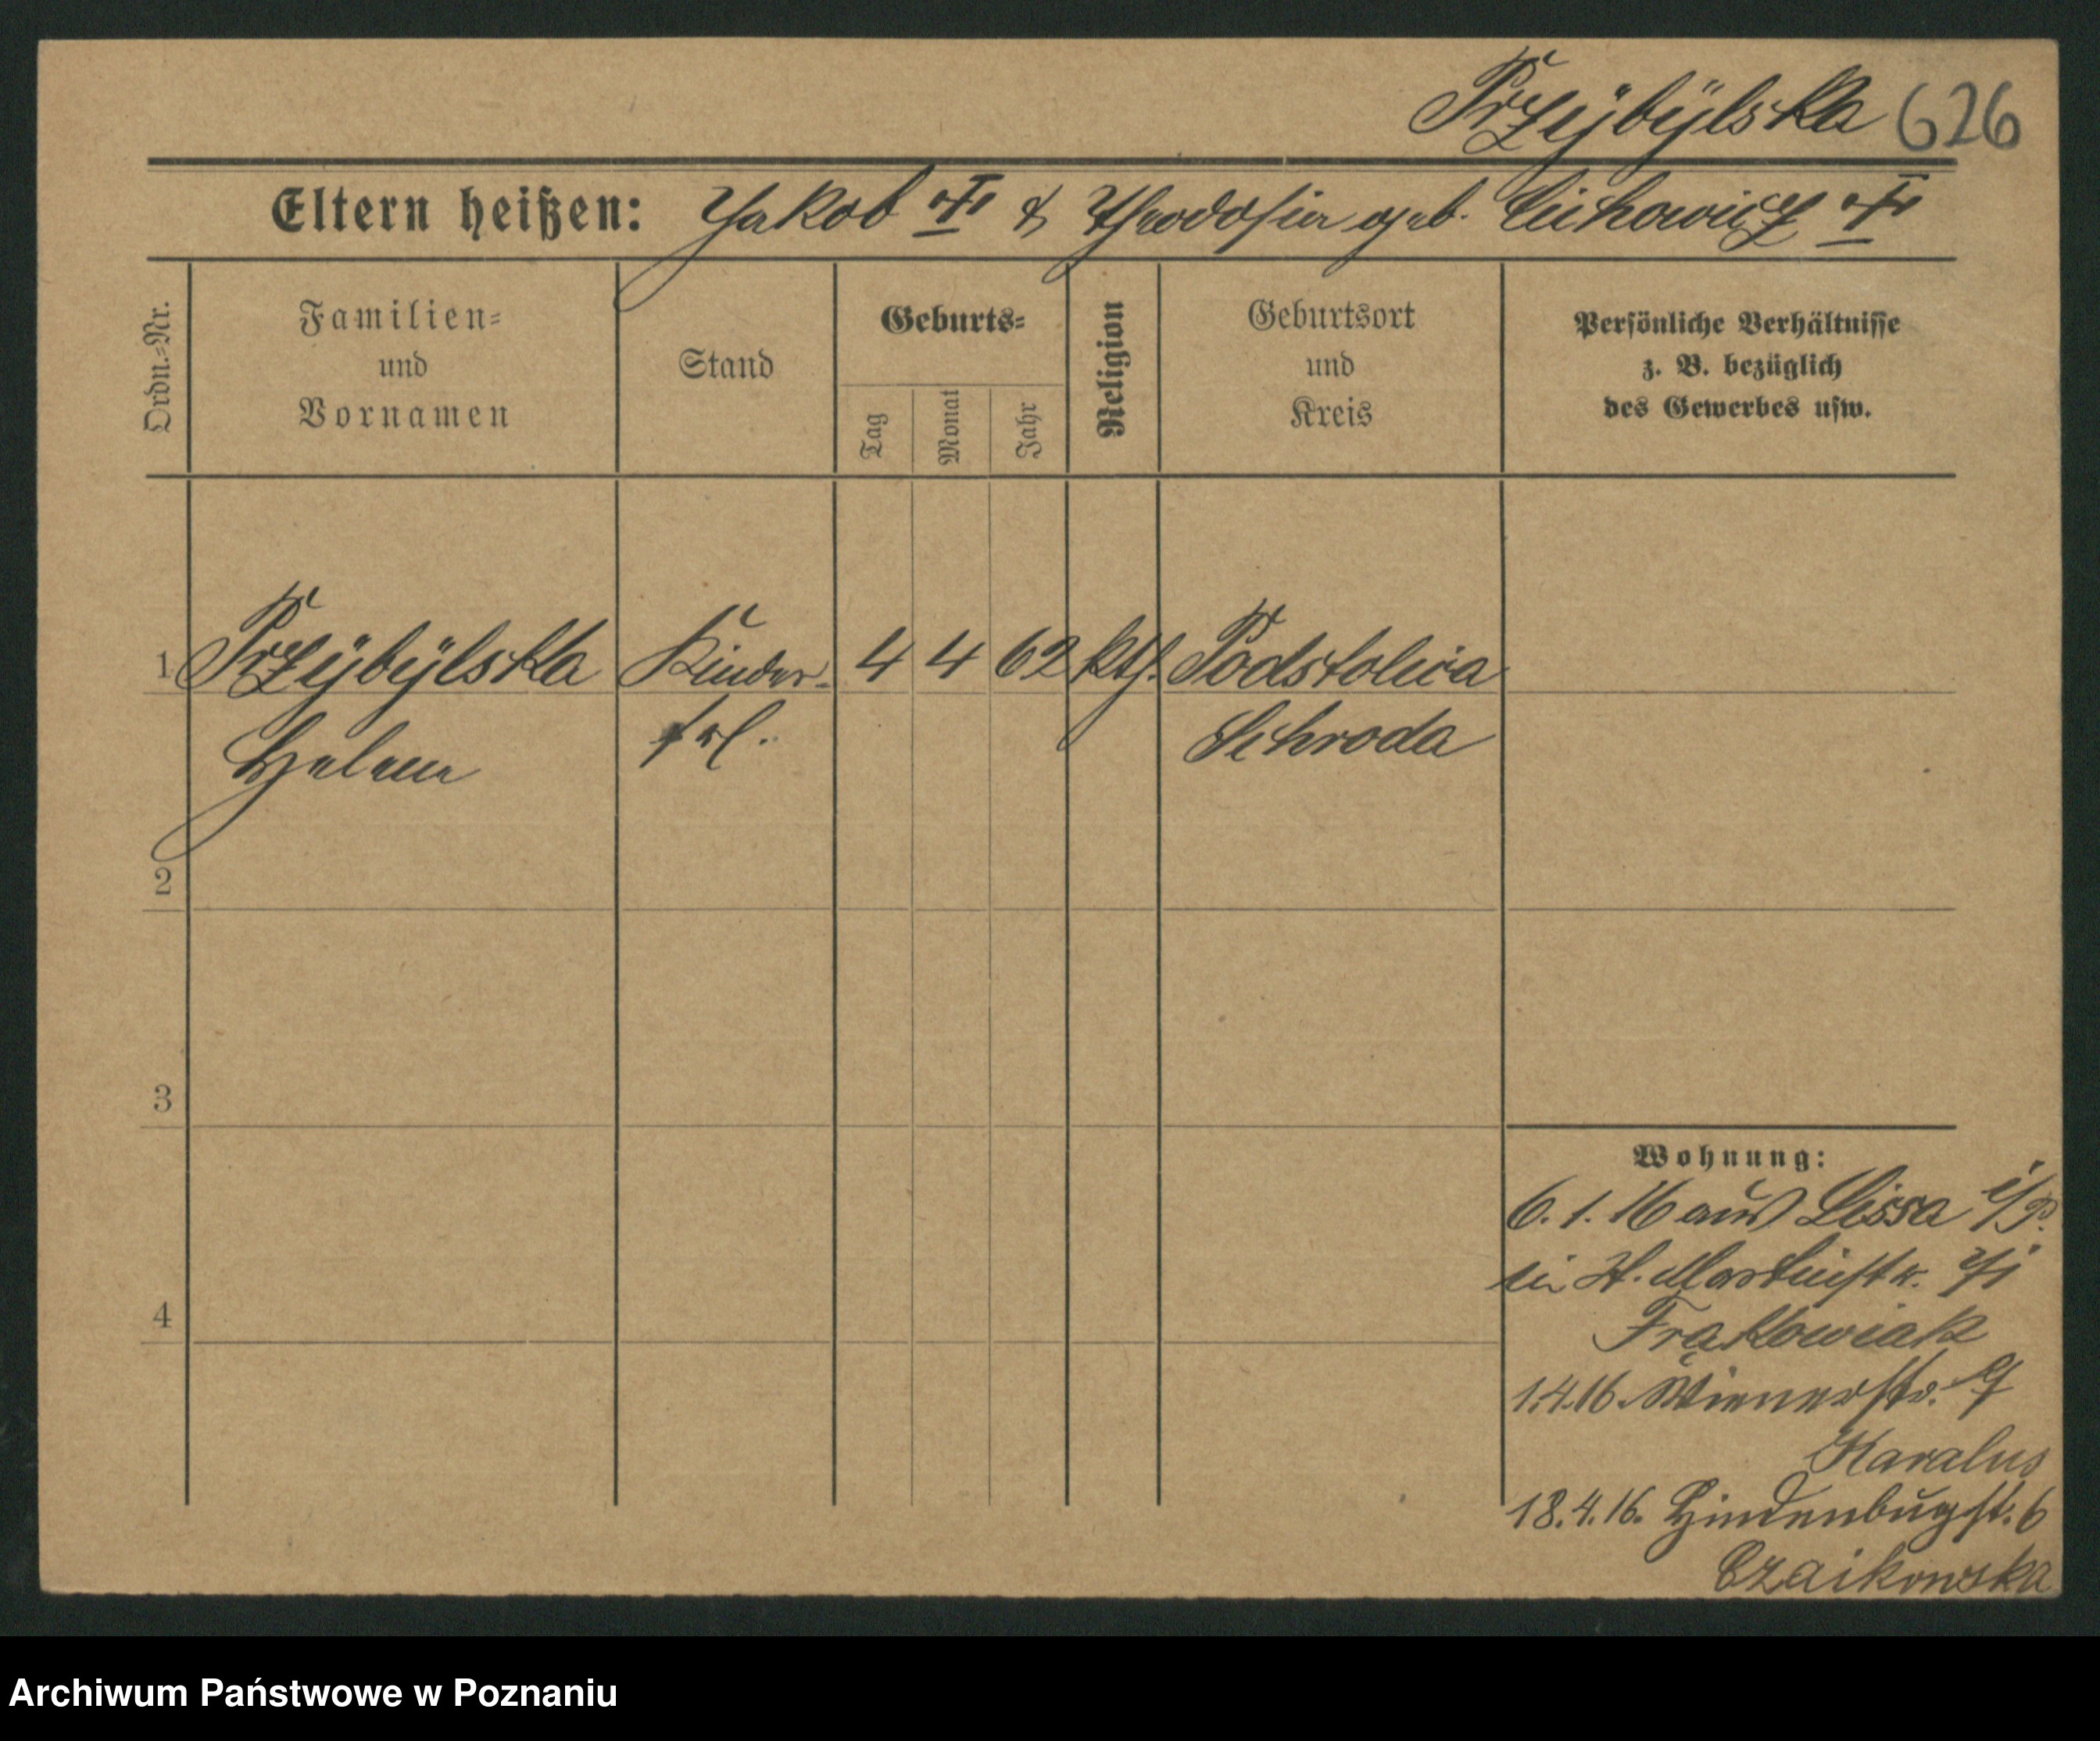 Przÿbÿlska 626
Eltern heißen: Jakob & Theodosia geb. Cichowicz
Ordn.-Nr.
Familien-
und
Vornamen
Stand
Geburts-
Tag
Monat
Jahr
Religion
Geburtsort
und
Kreis
Persönliche Verhältnisse
z. B. bezüglich
des Gewerbes usw.
1 Przÿbÿlska Kinder- 4 4 62 kth. Podstolica
Helena frl. Schroda
2
3
4
Wohnung:
6. 1. 16 aus Lissa i/P.
St. Martinstr.
Frąkowiak
1.4.16. Wienerstr.
Karalus
18.4.16. Hindenbugst. 6
Czaikowska
Archiwum Państwowe w Poznaniu